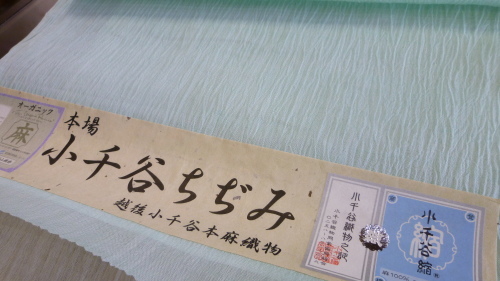 オーガニック
麻
本場
小千谷ちぢみ
越後小千谷本麻織物
小千谷織物之証
小千谷縮
麻100%